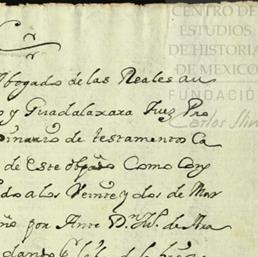 CENTRO DE
ESTUDIOS
DE HISTORIA
DE MEXICO
FUNDACIÓN
Carlos Slim
Abogado de las Reales au
y Guadalaxara Juez Pro
dinario de testamentos Ca
de este obpdo Como Con
do alos Veinte y dos de Mar
año por Ante Dn